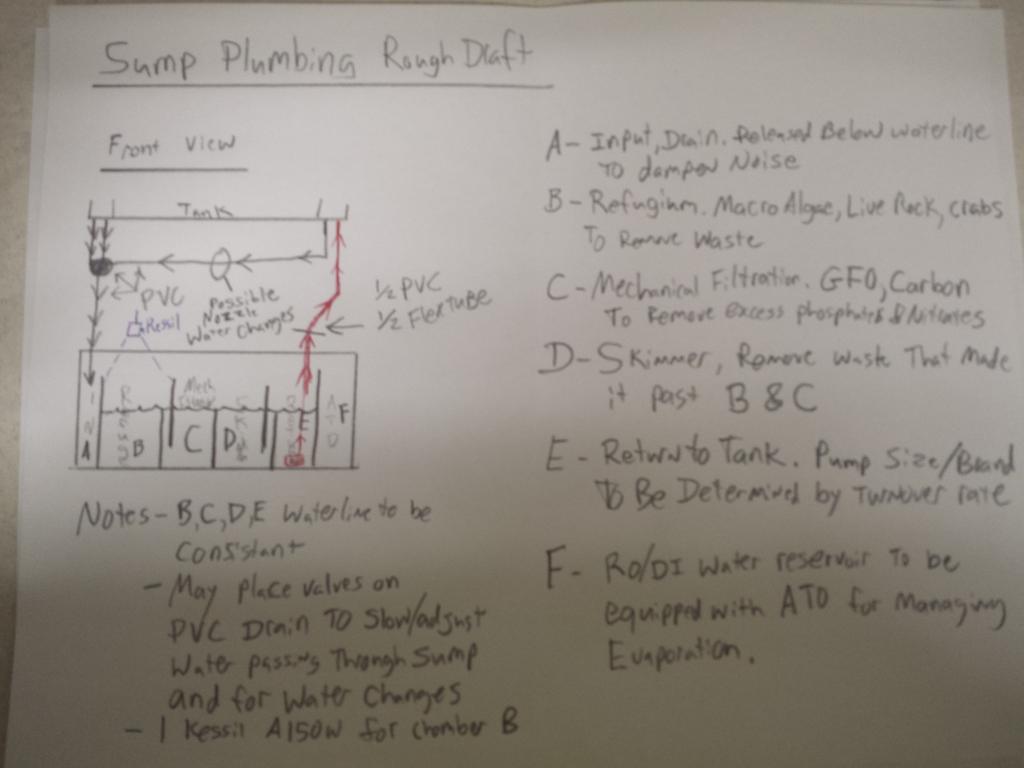 Sump Plumbing Rough Draft
Front View
Tank
PVC
Possible
Nozzle
Water Changes
1/2 PVC
1/2 Flex TUBE
Kessil
Mech
A
B
C
D
E
F
ATO
Notes - B,C,D,E Waterline to be
Consistant
- May place valves on
PVC Drain TO Slow/adjust
Water passing Through Sump
and for Water Changes
- 1 Kessil A150W for chamber B
A - Input, Drain. Released Below waterline
TO dampen Noise
B - Refugium. Macro Algae, Live Rock, crabs
To Remove Waste
C - Mechanical Filtration. GFO, Carbon
To Remove Excess phosphates & Nitrates
D - Skimmer, Remove waste That made
it past B & C
E - Return to Tank. Pump Size/Brand
To Be Determined by Turnover rate
F - RO/DI Water reservoir To be
equipped with ATO for Managing
Evaporation.